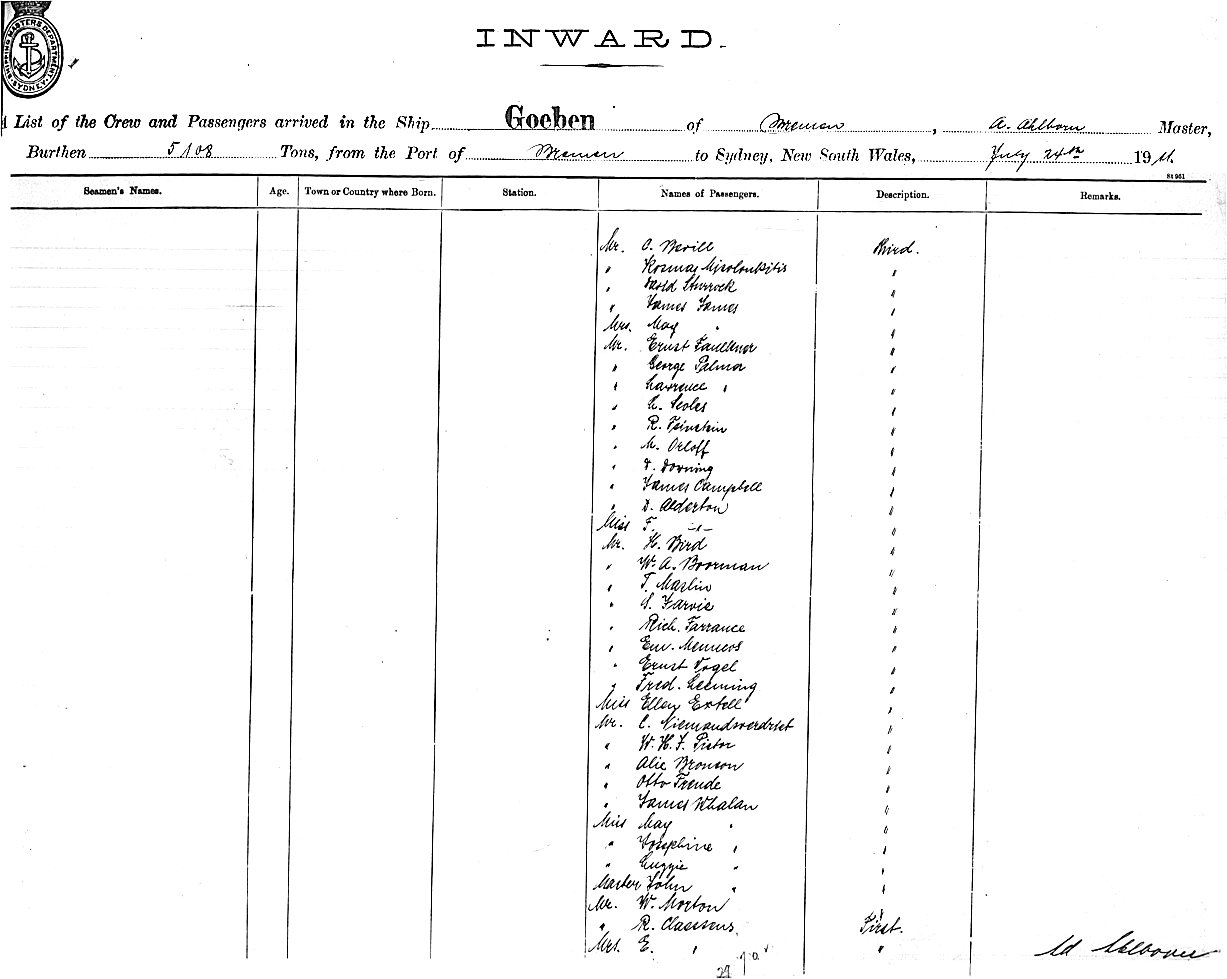 SHIPPING MASTERS DEPARTMENT. SYDNEY.
INWARD.
A List of the Crew and Passengers arrived in the Ship Goeben of Bremen, A. Ahlborn Master,
Burthen 5108 Tons, from the Port of Bremen to Sydney, New South Wales, July 24th 1911.
St 951
Seamen's Names. Age. Town or Country where Born. Station. Names of Passengers. Description. Remarks.
Mr. O. Bevill Third.
" Kosmas "
" David Sturrock "
" James James "
Mrs. May " "
Mr. Ernst Faulkner "
" George Palmer "
" Lawrence " "
" "
" R. Feinstein "
" M. Orloff "
" Downing "
" James Campbell "
" D. Alderton "
Miss F. -"- "
Mr. H. Bird "
" W. A. Boorman "
" T. Maslin "
" S. Jarvie "
" Rich. Farrance "
" Em. "
" Ernst Vogel "
" Fred. Leeming "
Miss Ellen "
Mr. C. Niemandsverdriet "
" W. H. F. Pistor "
" Alie Bronson "
" Otto Freude "
" James Whalan "
Miss May " "
" Josephine " "
" " "
Master John " "
Mr. W. Morton "
" R. Claessens First.
Mrs. E. " "
Ahlborn